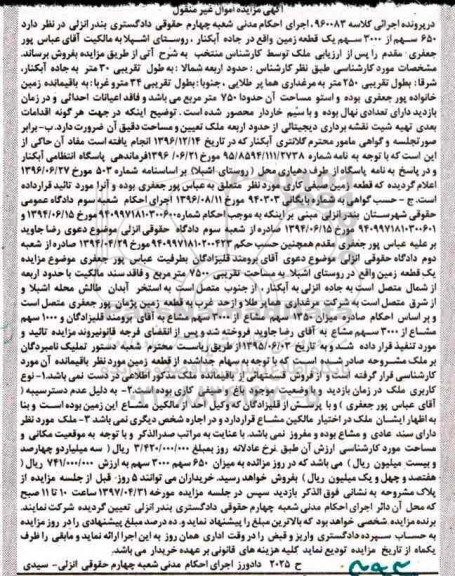 آگهی مزایده اموال غیر منقول
درپرونده اجرائی کلاسه ۹۶۰۰۸۳، اجرای احکام مدنی شعبه چهارم حقوقی دادگستری بندر انزلی در نظر دارد
۶۵۰ سهم از ۳۰۰۰ سهم یک قطعه زمین واقع در جاده آبکنار، روستای اشپلا به مالکیت آقای عباس پور
جعفری مقدم را پس از ارزیابی ملک توسط کارشناس منتخب به شرح آتی از طریق مزایده بفروش برساند.
مشخصات مورد کارشناسی طبق نظر کارشناس: حدود اربعه شمالا: به طول تقریبی ۳۰ متر به جاده آبکنار،
شرقا: بطول تقریبی ۲۵۰ متر به مرغداری هما پر طلایی، جنوبا: بطول تقریبی ۳۴ مترو غربا: به باقیمانده زمین
خانواده پور جعفری بوده و استو مساحت آن حدودا ۷۵۰۰ متر مربع می باشد و فاقد اعیانات احداثی و در زمان
بازدید دارای تعدادی نهال بوده و با سیم خاردار محصور شده است. توضیح اینکه در جهت هر گونه اقدامات
بعدی تهیه شیت نقشه برداری دیجیتالی از حدود اربعه ملک تعیین و مساحت دقیق آن ضرورت دارد. ب- برابر
صورتجلسه و گواهی مامور محترم کلانتری آبکنار که در تاریخ ۱۳۹۶/۱۲/۱۴ انجام یافته است مفاد آن حاکی از
این است که با توجه به نامه شماره ۹۵/۸۵۹۴/۱۱۱/۲۷۳۸ مورخ ۱۳۹۶/۰۶/۲۱ فرماندهی پاسگاه انتظامی آبکنار
و در پاسخ به نامه پاسگاه از طرف دهیاری محل (روستای اشپلا) بر اساسنامه شماره ۵۰۳ مورخ ۱۳۹۶/۰۶/۲۷
اعلام گردیده که قطعه زمین صیفی کاری مورد نظر متعلق به عباس پور جعفری بوده و آنرا مورد تائید قرارداده
است. ج- حسب گواهی به شماره بایگانی ۹۴۰۳۰۳ مورخ ۱۳۹۶/۰۸/۱۱ اجرای احکام شعبه سوم دادگاه عمومی
حقوقی شهرستان بندر انزلی مبنی بر اینکه به موجب احکام شماره ۹۴۰۹۹۷۱۸۱۰۳۰۰۶۰۰ مورخ ۱۳۹۴/۰۶/۱۵ و
۹۴۰۹۹۷۱۸۱۰۳۰۰۶۰۱ مورخ ۱۳۹۴/۰۶/۱۵ صادره از شعبه سوم دادگاه حقوقی انزلی موضوع دعوی رضا جاوید
بر علیه عباس پور جعفری مقدم همچنین حسب حکم ۹۴۰۹۹۷۱۸۱۰۲۰۰۴۲۳ مورخ ۱۳۹۴/۰۴/۲۹ صادره از شعبه
دوم دادگاه حقوقی انزلی موضوع دعوی آقای برومند قلیزادگان بطرفیت عباس پور جعفری موضوع مزایده
یک قطعه زمین واقع در روستای اشپلا به مساحت تقریبی ۷۵۰۰ متر مربع و فاقد سند مالکیت با حدود اربعه
از شمال متصل است به جاده انزلی به آبکنار، از جنوب متصل است به استخر آبدان طالش محله اشپلا و
از شرق متصل است به شرکت مرغداری هما پر طلا و از حد غرب به قطعه زمین پژمان پور جعفری متصل است
و بر اساس احکام صادره میزان ۱۳۵۰ سهم مشاع از ۳۰۰۰ سهم مشاع به آقای برومند قلیزادگان و ۱۰۰۰ سهم
مشاع از ۳۰۰۰ سهم مشاع به آقای رضا جاوید فروخته شد و پس از انقضای فرجه قانونیروند مزایده تائید و
مورد تنفیذ قرار داده شد و به تاریخ ۱۳۹۵/۰۶/۰۳ از طریق ریاست محترم شعبه دستور تملیک نامبردگان
بر ملک مشروحه صادر شده است که با توجه به سهام جداشده از قطعه زمین مورد نظر باقیمانده آن مورد
کارشناسی قرار گرفته است و از فروش قسمتهائی از باقیمانده ملک مذکور اطلاعی در دست نمی باشد. ۱- نوع
کاربری ملک در زمان بازدید و با وضعیت موجود زمین صیفی کاری بوده است. ۲- به دلیل عدم دسترسیبه (
آقای عباس پور جعفری) و با پرسش از قلیزادگان که وکیل احد از مالکین مشاع این زمین بوده است و بنا
به اظهار ایشان ملک در اختیار مالکین مشاع قراردارد و در اجاره شخص دیگری نمی باشد ۳- ملک مورد نظر
دارای سند عادی و مشاع بوده و مفروز نمی باشد. با عنایت به مراتب صدرالذکر و با توجه به موقعیت مکانی و
مساحت مورد کارشناسی ارزش آن طبق نرخ عادلانه روز بمبلغ ۳/۴۲۰/۰۰۰/۰۰۰ ریال (سه میلیاردو چهارصد
و بیست میلیون ریال) می باشد که در روز مزائده به میزان ۶۵۰ سهم ۳۰۰۰ سهم به ارزش ۷۴۱/۰۰۰/۰۰۰ ریال (
هفتصد و چهل و یک میلیون ریال) بفروش خواهد رسید. خریداران می توانند ۵ روز قبل از جلسه مزایده از
پلاک مشروحه به نشانی فوق الذکر بازدید سپس در جلسه مزایده مورخه ۱۳۹۷/۰۴/۳۱ ساعت ۱۰ تا ۱۱ صبح
که محل آن دائر اجرای احکام مدنی شعبه چهارم حقوقی دادگستری بندر انزلی تعیین گردیده شرکت نمایند.
برنده مزایده شخصی خواهد بود که بالاترین مبلغ را پیشنهاد نماید و ده درصد مبلغ پیشنهادی را در روز مزایده
به حساب سپرده دادگستری واریز و قبض را در وقت اداری همان روز به این اجرا ارائه نماید و مابقی را ظرف
یکماه از تاریخ مزایده تودیع نماید کلیه هزینه های قانونی بر عهده خریدار می باشد.
ح ۲۰۲۵ دادورز اجرای احکام مدنی شعبه چهارم حقوقی انزلی- سیدی